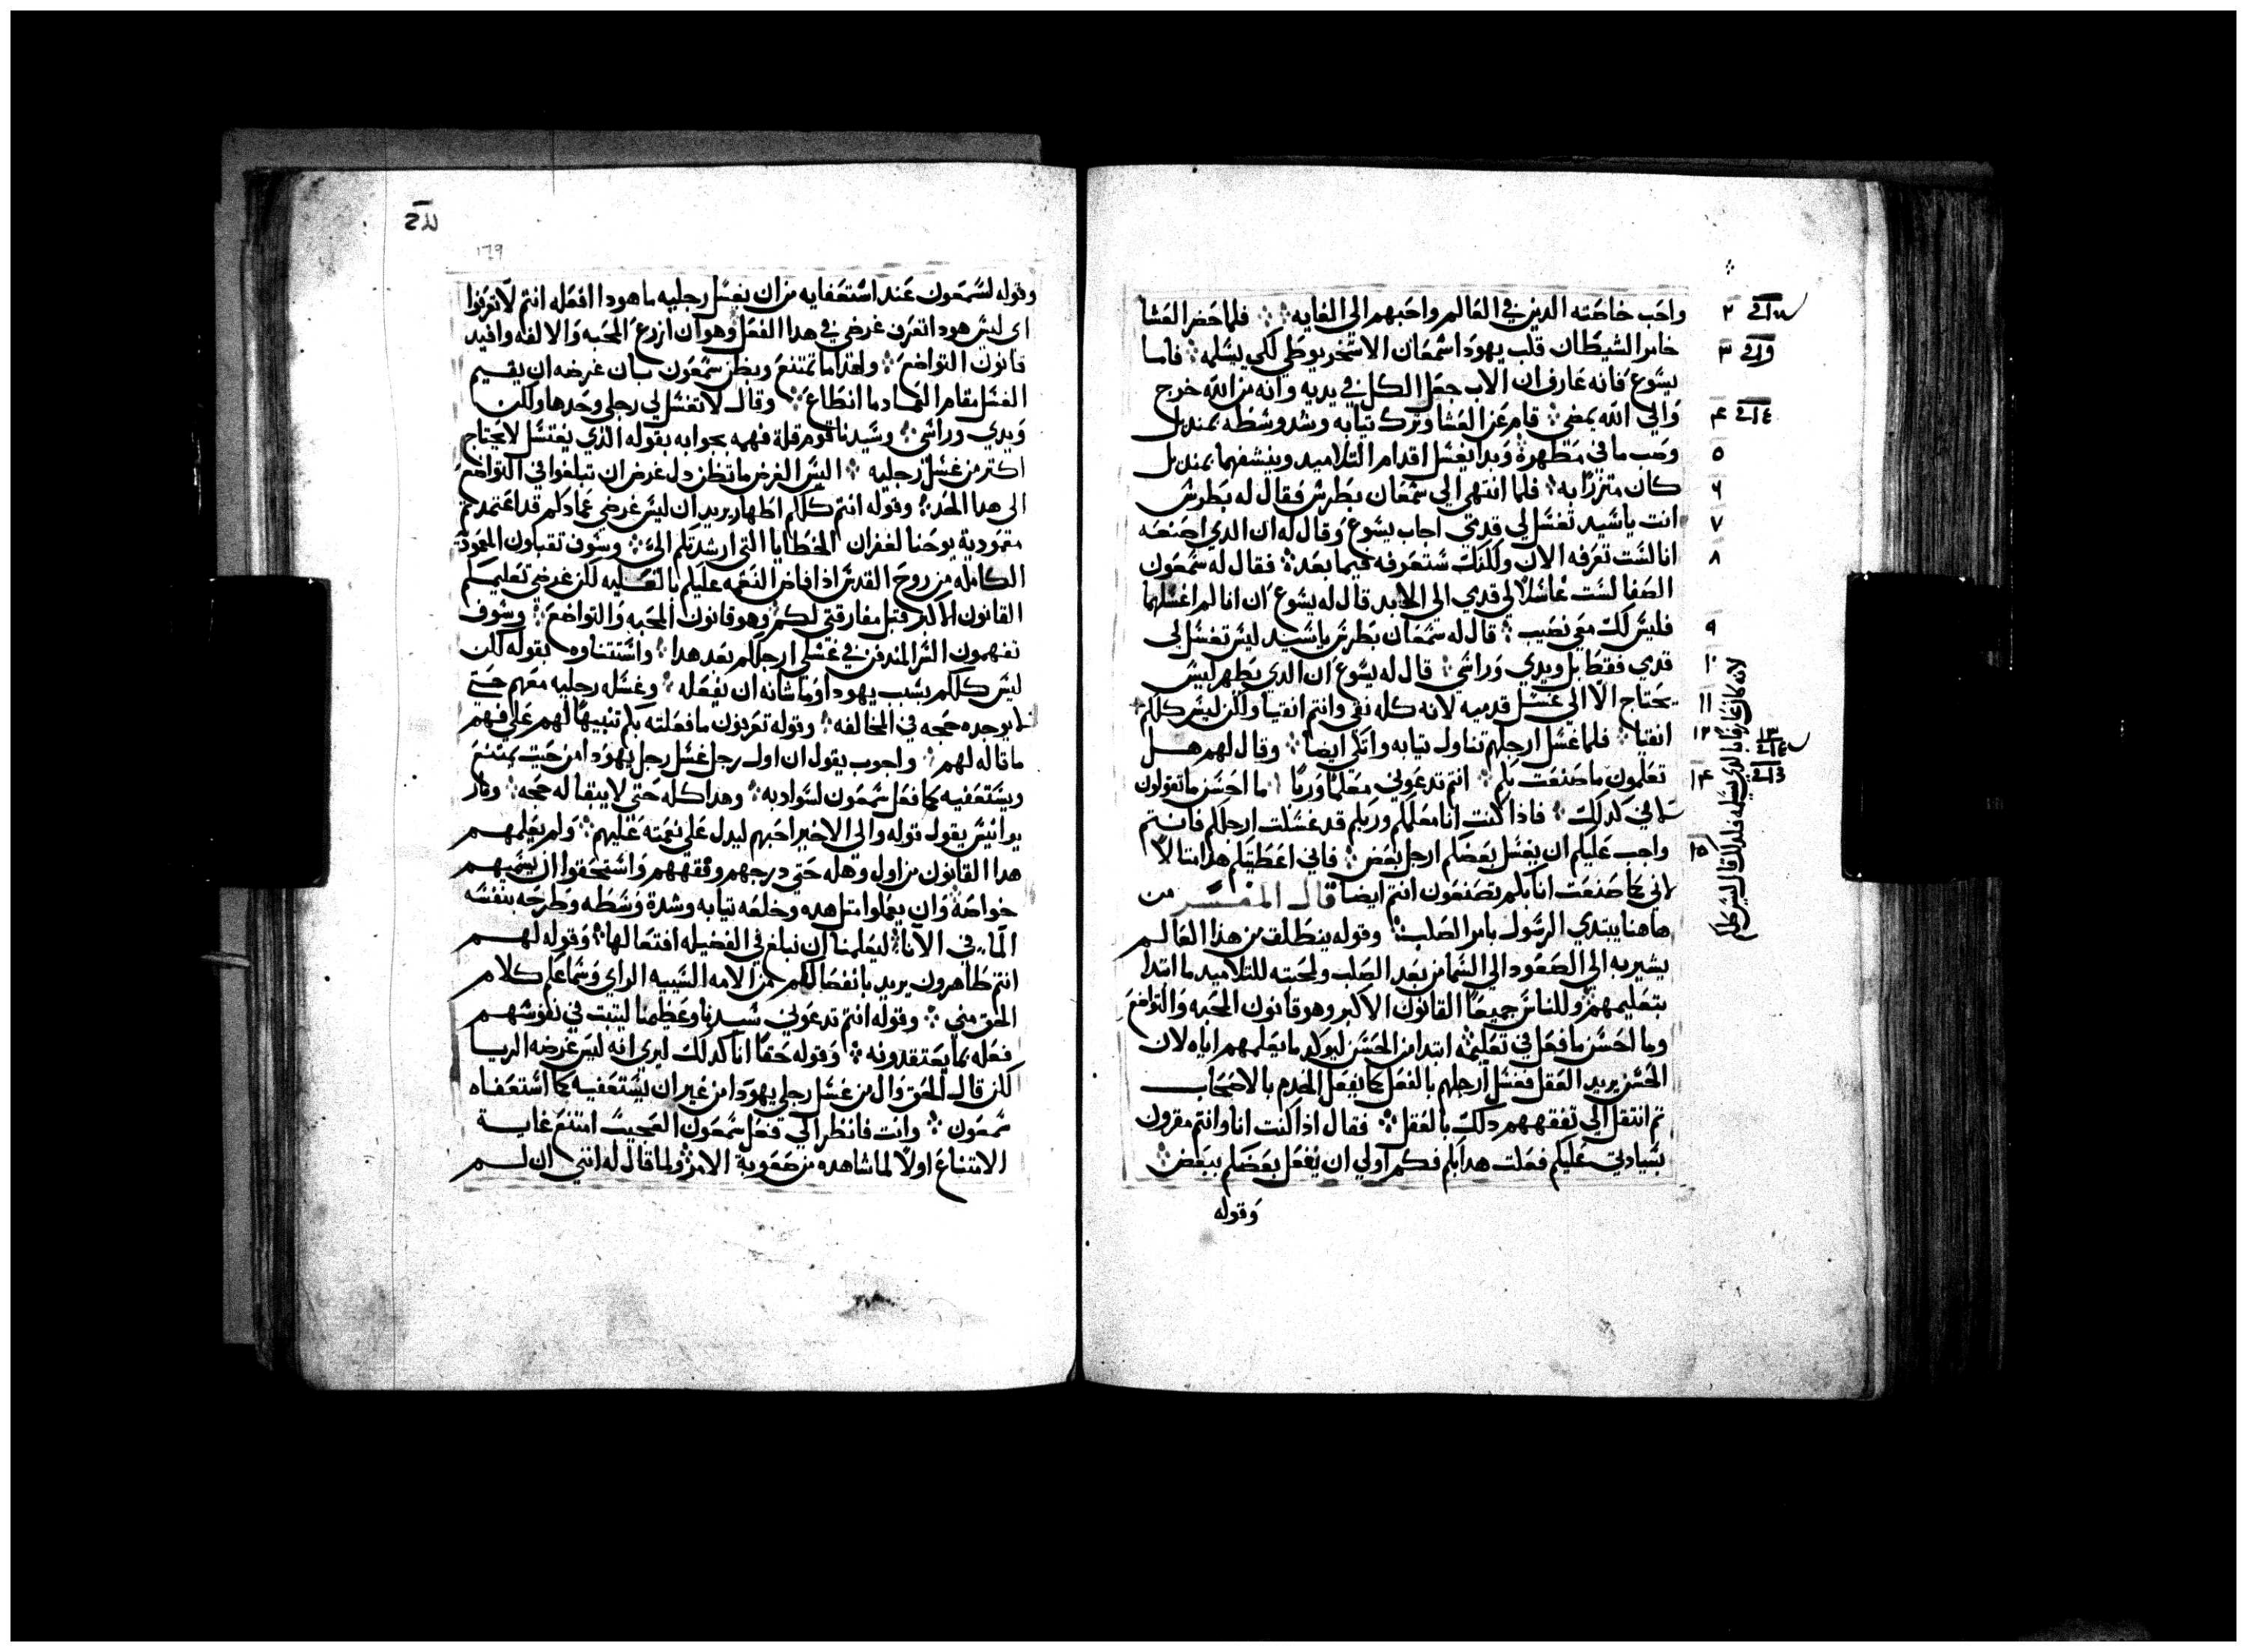 واحب خاصته الدين في العالم واحبهم الي الغايه ؛ فلما حضر العشا
خامر الشيطان قلب يهودا سمعان الاسخريوطي لكي يسلمه ؛ فاما
يسوع فانه عارف ان الاب جعل الكل في يديه وانه من الله خرج
والي الله يمضي ؛ قام عن العشا وترك تيابه وشد وسطه بمنديل
وصب ما في مطهرة وبدا يغسل اقدام التلاميد وينشفهما بمنديل
كان متزرا به ؛ فلما انتهي الي سمعان بطرس فقال له بطرس
انت ياسيد تغسل لي قدمي اجاب يسوع وقال له ان الدي اصنعه
انا لست تعرفه الان ولكنك ستعرفه فيما بعد ؛ فقال له سمعون
الصفا لست غاسلا لي قدمي الي الابد قال له يسوع ان انا لم اغسلهما
فليس لك معي نصيب ؛ قال له سمعان بطرس ياسيد ليس تغسل لي
قدمي فقط بل ويدي وراسي ؛ قال له يسوع ان الدي يطهر ليس
يحتاج الا الي غسل قدميه لانه كله نقي وانتم انقيا ولكن ليس كلكم
انقيا ؛ فلما غسل ارجلهم تناول تيابه واتكي ايضا ؛ وقال لهم هل
تعلمون ما صنعت بكم ؛ انتم تدعوني معلما وربا ؛ ما احسن ما تقولون
لاني كدلك ؛ فاذا كنت انا معلمكم وربكم قد غسلت ارجلكم فانتم
واجب عليكم ان يغسل بعضكم ارجل بعض ؛ فاني اعطيتكم هدا متالا
لاني كما صنعت انا بكم تصنعون انتم ايضا قال المفسر من
هاهنا يبتدي الرسول بامر الصلب ؛ وقوله ينطلق من هذا العالم
يشير به الي الصعود الي السما من بعد الصلب ولمحبته للتلاميد ما ابتدا
بتعليمهم وللناس جميعا القانون الاكبر وهو قانون المحبه والتواضع
وما احسن ما فعل في تعليمه ابتدا من الحسن ليوكد ما يعلمهم اياه لان
الحسن يريد العقل فغسل ارجلهم بالفعل كما يفعل الخدم بالاصحاب
تم انتقل الي تفقههم دلك بالعقل ؛ فقال اذا كنت انا وانتم مقرون
بسيادتي عليكم فعلت هدا بكم فكم اولي ان يفعل بعضكم ببعض
وقوله
٢
٣
٤
٥
٦
٧
٨
٩
١٠
١١
١٢
١٣
١٤
١٥
لانه كان عارفا بالدي يسلمه فلدلك قال ليس كلكم
١٦٩
وقوله لسمعون عند استعفايه من ان يغسل رجليه ما هودا افعله انتم لا تعرفوا
اي ليس هودا تعرف غرضي في هدا الفعل وهو ان ازرع المحبه والالفه وافيد
قانون التواضع ؛ ولعدما تمتنع ويظن سمعون بان غرضه ان يقيم
الغسل مقام العماد ما انطاع ؛ وقال لا تغسل لي رجلي وحدها ولكن
ويدي وراسي ؛ وسيدنا قوم قلة فهمه بجوابه بقوله الذي يغتسل لا يحتاج
اكتر من غسل رجليه ؛ اليس الغرض ما تظن دل غرض ان تبلغوا في التواضع
الي هدا الحد ؛ وقوله انتم كلكم اطهار يريد ان ليس غرضي عمادكم قد اعتمدتم
معمودية يوحنا لغفران الخطايا التي ارشدتكم الي ؛ وسوف تقبلون المعمودية
الكامله من روح القدس اذا افاض النعمه عليكم بالعليه لكن غرضي تعليمكم
القانون الاكبر قبل مفارقتي لكم وهو قانون المحبه والتواضع ؛ وسوف
تفهمون السر المندفن في غسلي ارجلكم بعد هدا ؛ واستتناوه بقوله لكن
ليس كلكم بسبب يهودا وما شانه ان يفعله ؛ وغسله رجليه معهم حتي
لا يوجده حجه في المخالفه ؛ وقوله تعرفون ما فعلته بكم تنبيها لهم علي فهم
ما قاله لهم ؛ واجوب يقول ان اول رجل غسل رجل يهودا من حيت يمتنع
ويستعفيه كما فعل سمعون لسوادبه ؛ وهدا كله حتي لا يبتقا له حجه ؛ وفار
يوانيس يقول قوله والي الاخير احبهم ليدل علي نعمته عليهم ؛ ولم يعلمهم
هدا القانون من اول وهله حتي درجهم وفقههم واستحقوا ان يسميهم
خواصه وان يعملوا متل هده وخلعه تيابه وشدة وسطه وطرحه بنفسه
الما في الانا ؛ ليعلمنا ان نبلغ في الفضيله افتعالها ؛ وقوله لهم
انتم طاهرون يريد بانفصالكم من الامه السييه الراي وسماعكم كلام
الحق مني ؛ وقوله انتم تدعوني سيدنا وعظيمنا ليتبت في نفوسهم
فعله بما يعتقدونه ؛ وقوله حقا انا كدلك ليري انه ليس غرضه الريا
لكن قال الحق وال من غسل رجلي يهودا من غير ان يستعفيه كما استعفاه
سمعون ؛ وانت فانظر الي فعل سمعون العجيب امتنع غاية
الامتناع اولا لما شاهده من صعوبة الامر ولما قال له انني ان لم